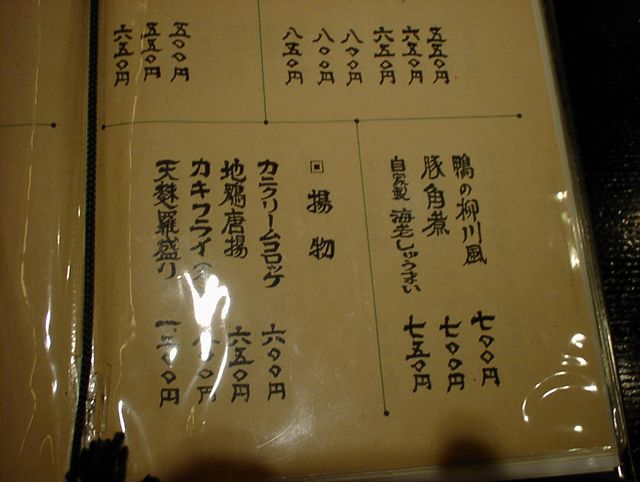 五五〇円
六五〇円
六五〇円
八〇〇円
八〇〇円
八五〇円
五〇〇円
五五〇円
六五〇円
鴨の柳川風 七〇〇円
豚角煮 七〇〇円
自家製 海老しゅうまい 七五〇円
揚物
カニクリームコロッケ 六〇〇円
地鶏唐揚 六五〇円
カキフライ
天麩羅盛り